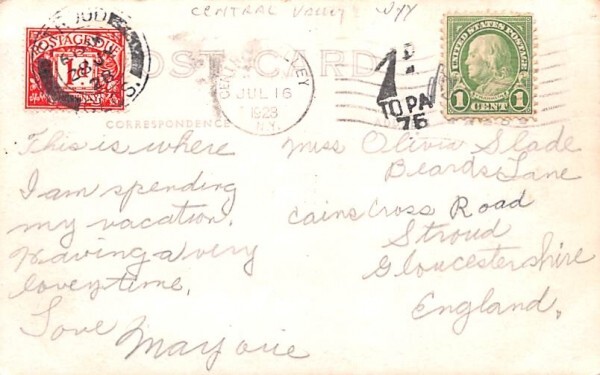 CENTRAL VALLEY NY
POST CARD
POSTAGE DUE
1D
UNITED STATES POSTAGE
1 CENT 1
VALLEY
JUL 16
1928
N.Y.
1D
TO PAY
76
CORRESPONDENCE
This is where
I am spending
my vacation.
Having a very
lovey time,
Love
Marjorie
Miss Olivia Slade
Beards Lane
Cainscross Road
Stroud
Gloucestershire
England.